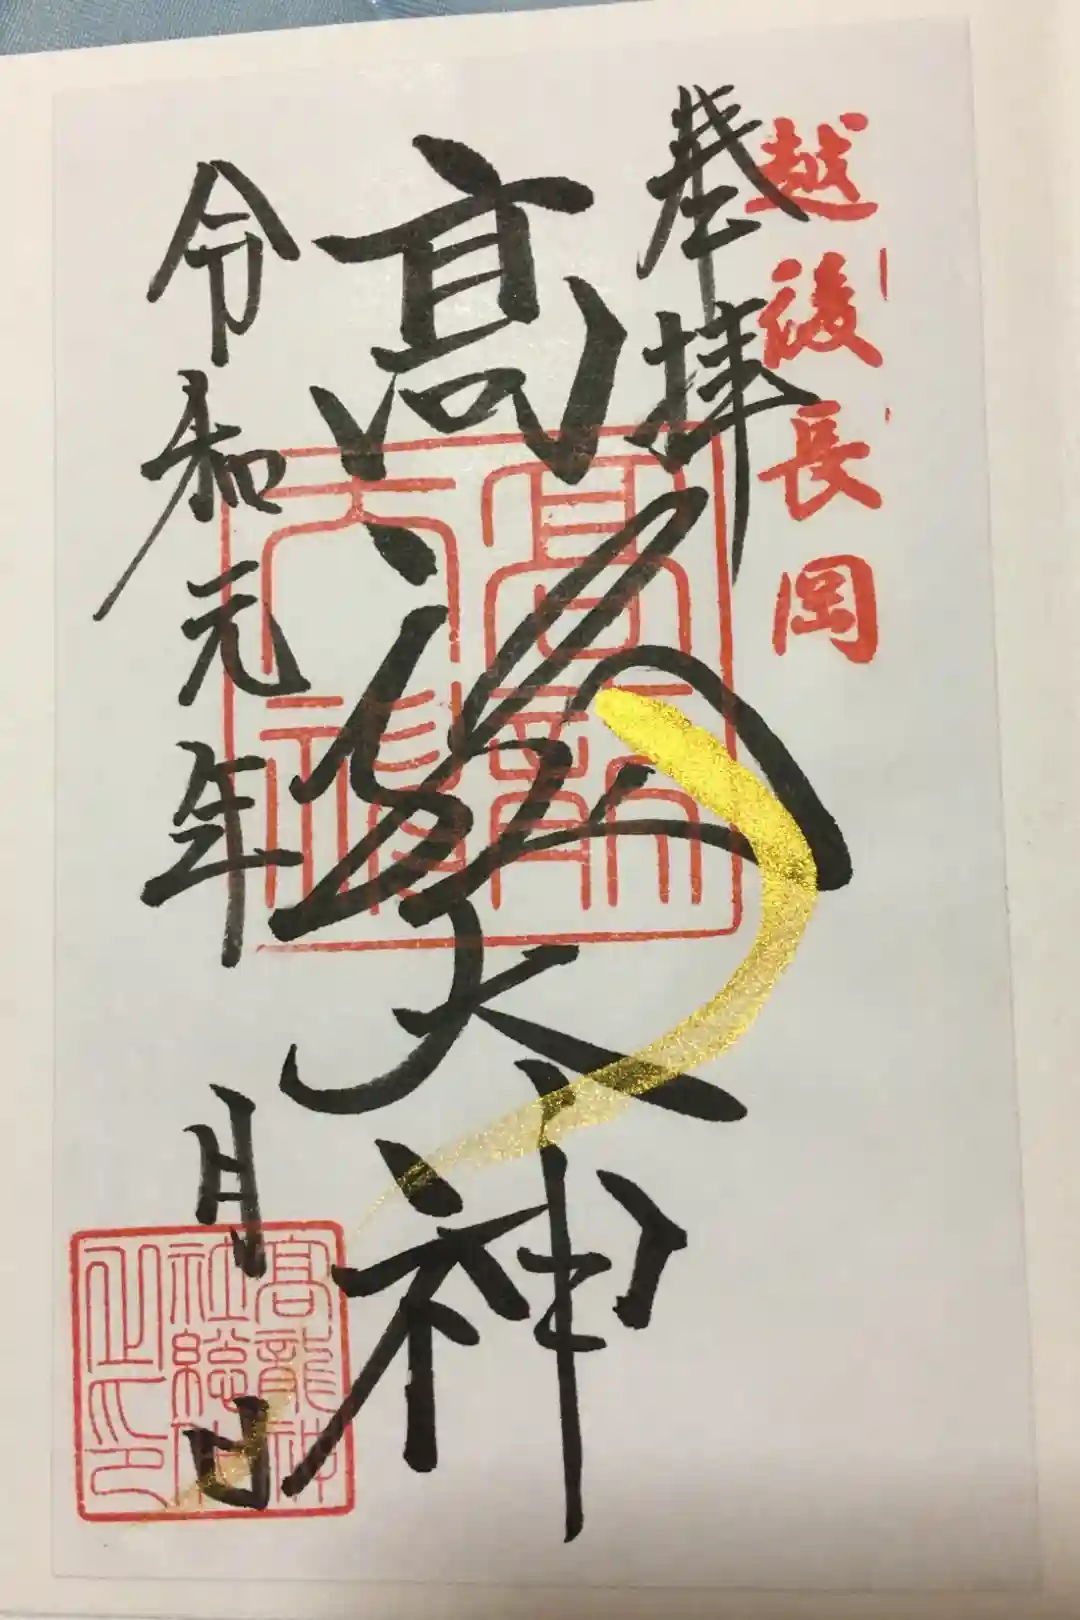 越後長岡
奉拝
高龍大神
令和元年 月 日
高龍大神
高龍神
社総本
山之印